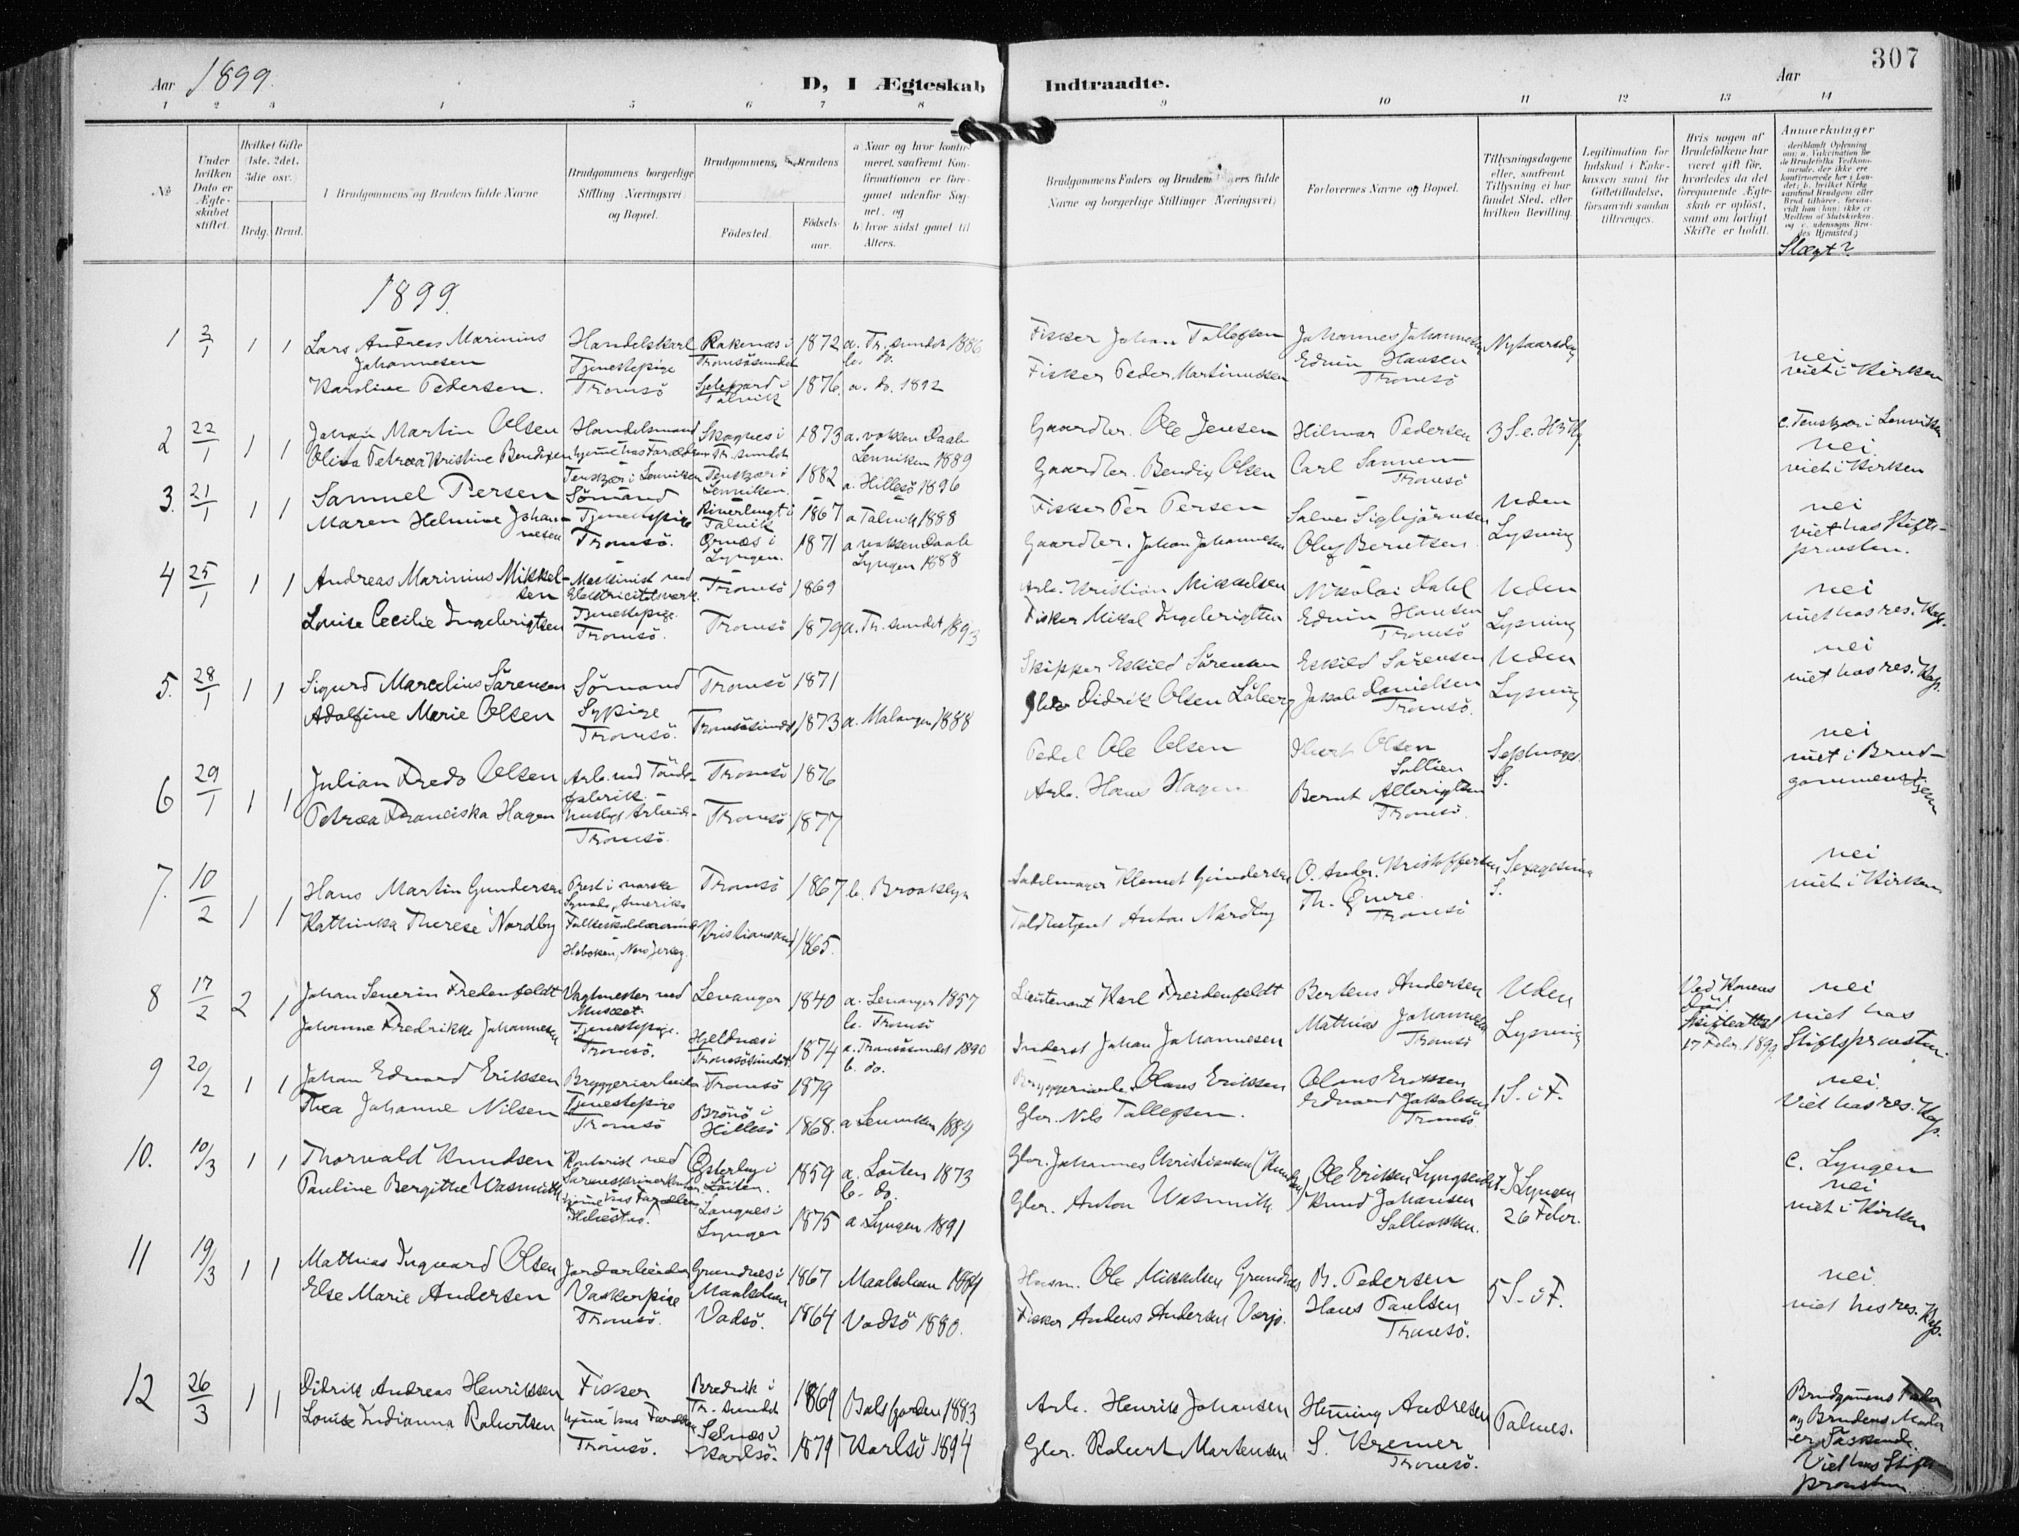 307
Aar 1899.
D, I Ægteskab Indtraadte.
Aar
1 2 3 4 5 6 7 8 9 10 11 12 13 14
No
Under hvilken Dato er Ægteskabet stiftet.
Hvilket Gifte (1ste, 2det, 3die osv.)
Brdg. Brud.
Brudgommens og Brudens fulde Navne
Brudgommens borgerlige Stilling (Næringsvei) og Bopæl.
Brudgommens, Brudens
Födested.
Födselsaar.
Brudgommens Faders og Brudens Faders fulde Navne og borgerlige Stillinger (Næringsvei)
Forlovernes Navne og Bopæl.
Tillysningsdagene eller, saafremt Tillysning ei har fundet Sted, efter hvilken Bevilling.
Legitimation for Indskud i Enkekassen samt for Giftetilladelse, forsaavidt saadan tiltrænges.
Hvis nogen af Brudefolkene har været gift før, hvorledes da det foregaaende Ægteskab er opløst, samt om lovligt Skifte er holdt.
Anmerkninger
Slægt?
1899.
1 3/1 1 1 Lars Andreas Marinius Johannesen Handelskarl Rakenæs i Tromsösundet 1872 a. Tr.sundet 1886 b. do. Fisker Johan Tollefsen Nytaarsdag
Karoline Pedersen. Tjenestepige Tromsö Talvik 1876 a. do. 1892 Fisker Peder Martinussen Edvin Hansen Tromsö nei viet i Kirken
2 22/1 1 1 Johan Martin Olsen Handelsmand Skognes i Tr. sundet 1873 a. voksen Daab Lenviken 1889 Gaardbr. Ole Jensen Hilmar Pedersen
Oliva Petræa Kristine Bendixen hjemme hos Forældre Tenskjær i Lenviken 1882 a. Hillesö 1896 Gaardbr. Bendix Olsen Carl Sannem Tromsö c. Tenskjær i Lenviken nei viet i Kirken
3. 21/1 1 1 Samuel Persen Sömand Talvik 1867 a Talvik 1888 Fisker Per Persen Uden Lysning
Maren Helmine Johannesen Tjenestepige Tromsö. Ornæs i Lyngen. 1871 a voksen Daab Lyngen 1888 Gaardbr. Johan Johannesen Oluf Berntsen nei viet hos Stiftsprovsten.
4 25/1 1 1 Andreas Marinius Mikkelsen Maskinist ved Elektricitetsverk. Tromsö 1869 Arb. Kristian Mikkelsen Nikolai Dahl Uden Lysning
Louise Cecilie Ingebrigtsen Tjenestepige Tromsö. Tromsö 1879 a. Tr.sundet 1893 Fisker Mikal Ingebrigtsen Edvin Hansen Tromsö nei viet hos res. Kap.
5. 28/1 1 1 Sigurd Marcelius Sörensen Sömand Tromsö 1871 Skipper Eskild Sörensen Eskild Sörensen Uden Lysning
Adolfine Marie Olsen Sypige Tromsö. Tromsösundet 1873 a. Malangen 1888 Didrik Olsen Jakob Danielsen Tromsö. nei viet hos res. Kap.
6 29/1 1 1 Julian Fredo Olsen Arb. ved Töndefabrik Tromsö 1876 Pedel Ole Olsen Olsen Septuages. S.
Petræa Franciska Hagen Tromsö. Tromsö 1877 Arb. Hans Hagen Bernt Tromsö. nei viet i Brudgommens Hjem
7. 10/2 1 1 Hans Martin Gundersen Prest i norske Synode, Amerika Tromsö 1867 b. Brooklyn Sadelmager Klemet Gundersen O. Andr. Kristoffersen Sexagesima S.
Kathinka Therese Nordby Folkeskolelærerinde Hoboken, New Jersey Kristiansand 1865. Toldbetjent Anton Nordby Th. Qvore Tromsö nei viet i Kirken
8 17/2 2 1 Johan Severin Fredenfeldt Vagtmester ved Museet. Levanger 1840 a. Levanger 1857 b. Tromsö Lieutenant Karl Freidenfeldt Bertens Andersen Uden Lysning Ved Konens Död Skifteattest 17 Febr. 1899
Johanne Fredrikke Johannesen Tjenestepige. Tromsö. Hjeldnæs i Tromsösundet 1874 a. Tromsösundet 1890 b. do. Inderst Johan Johannesen Mathias Johannesen Tromsö nei viet hos Stiftsprovsten.
9 20/2 1 1 Johan Edvard Erikssen Bryggeriarbeider Tromsö 1879 Bryggeriarb. Olaus Erikssen Olaus Erikssen 1 S. i F.
Thea Johanne Nilsen Tjenestepige Tromsö Brönö i Hillesö 1868. a Lenviken 1884 Gbr. Nils Tollefsen. Edvard Jakobsen Tromsö nei Viet hos res. Kap.
10. 10/3 1 1 Thorvald Knudsen Kontorist ved Sorenskriverkontor Österby i Löiten. 1859 a. Löiten 1873 b. do. Gbr. Johannes Christiansen (Knudsen) Ole Eriksen Lyngseidet I Lyngen 26 Febr.
Pauline Bergitte Wasmuth hjemme hos Forældre Langnes i Lyngen 1875 a Lyngen 1891 Gbr. Anton Wasmuth Knud Johansen c. Lyngen nei viet i Kirken
11 19/3 1 1 Mathias Ingvard Olsen Jordarbeider Grundnes i Maalselven 1867 Maalselven 1884 Husm. Ole Mikkelsen Grundnes B. Pedersen 5 S. i F.
Else Marie Andersen Vaskerpige Tromsö. Vadsö. 1864 Vadsö 1880. Fisker Anders Andersen Hans Paulsen Tromsö. nei viet hos res. Kap.
12 26/3 1 1 Didrik Andreas Henrikssen Fisker Bredvik i Tr. sundet 1869 Balsfjorden 1883 Arb. Henrik Johansen Heming Andresen Palmes.
Louise Indianna Robertsen hjemme hos Forældre Tromsö. Selnæs i Karlsö. 1879 Karlsö 1894 Gbr. Robert Martensen S. Kremer Tromsö. Brudgommens Fader og Brudens Moder er Söskende. Viet hos Stiftsprovsten